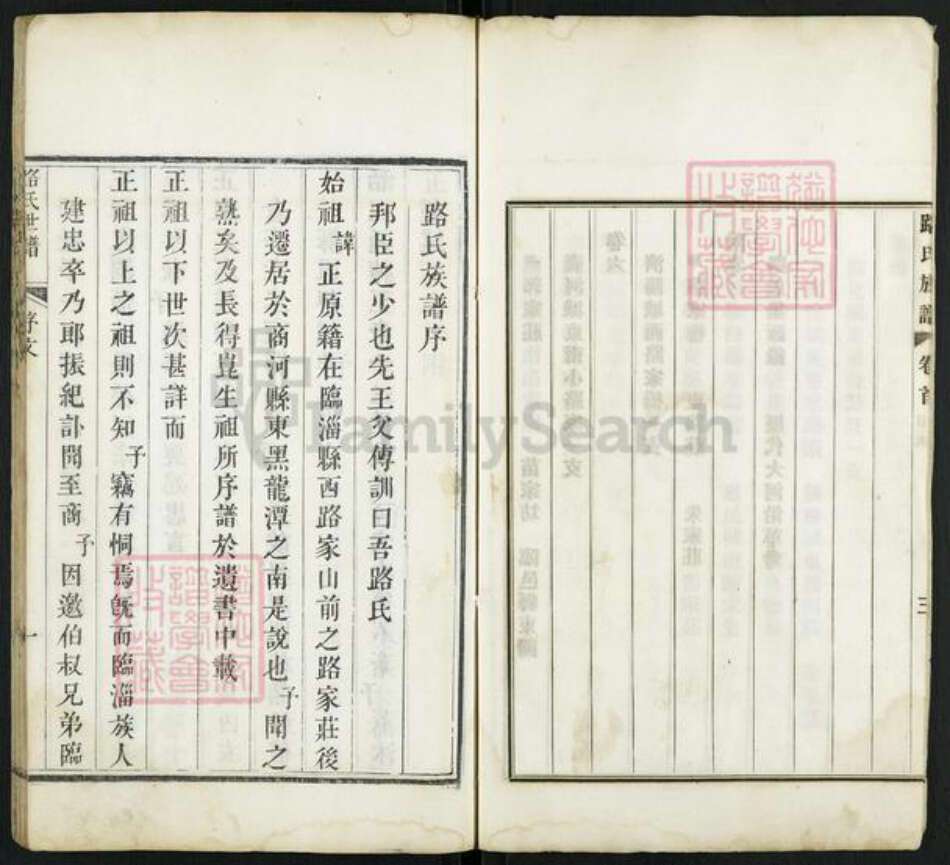 路氏族譜
卷首
三
路氏族譜序
邦臣之少也先王父傳訓曰吾路氏
始祖諱正原籍在臨淄縣西路家山前之路家莊後
乃遷居於商河縣東黑龍潭之南是說也予聞之
熟矣及長得崑生祖所序譜於遺書中載
正祖以下世次甚詳而
正祖以上之祖則不知予竊有恫焉旣而臨淄族人
建忠卒乃郎振紀訃聞至商予因邀伯叔兄弟臨
路氏世譜
序文
一
FamilySearch